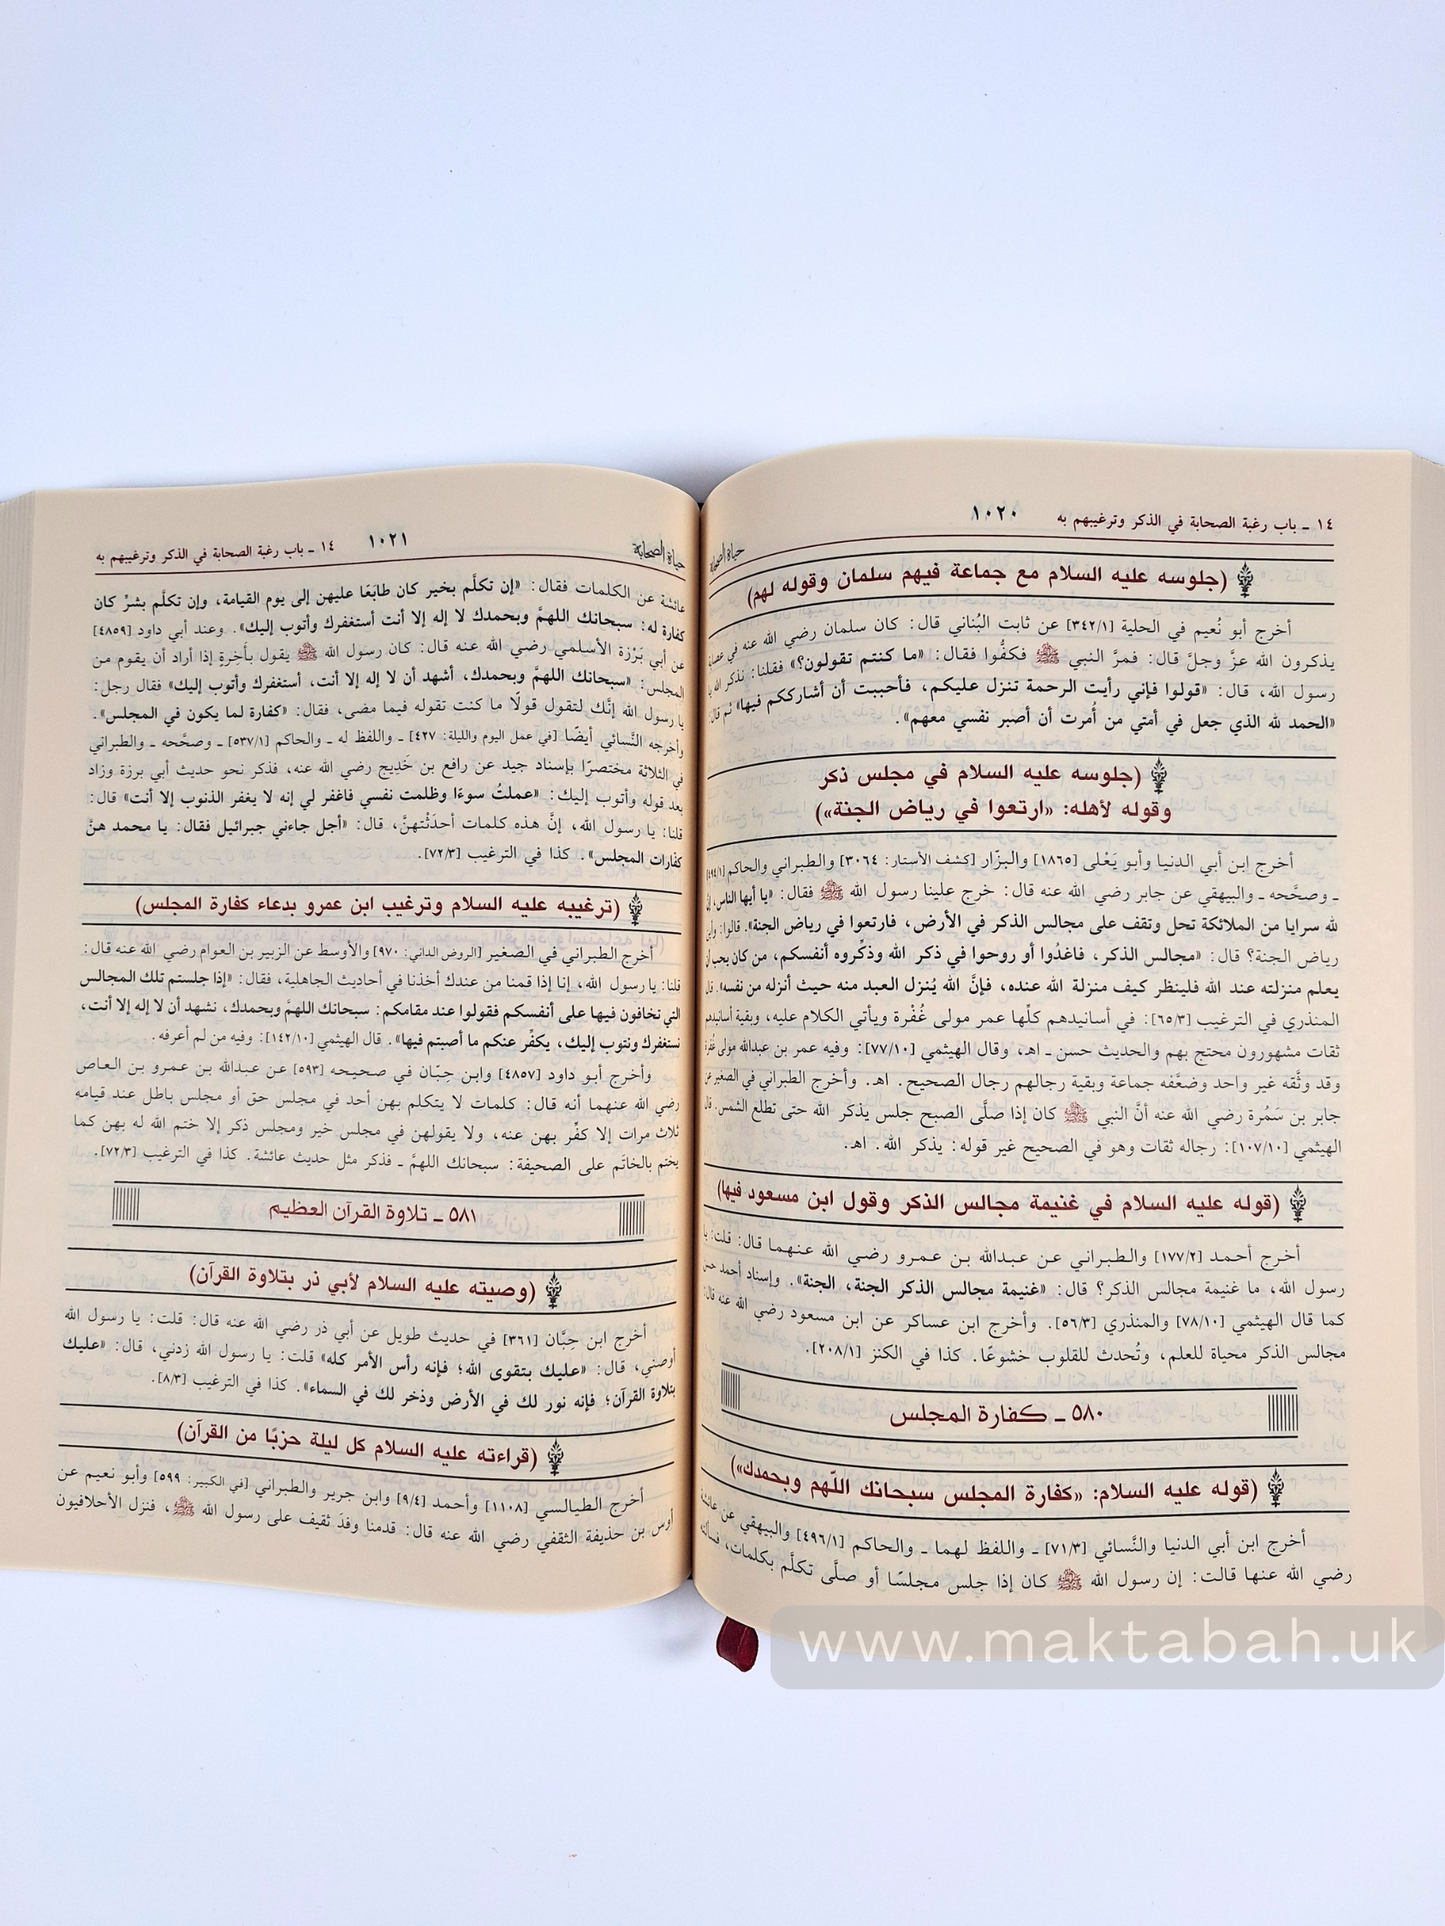 ١٤ ـ باب رغبة الصحابة في الذكر وترغيبهم به
١٠٢٠
حياة الصحابة
(جلوسه عليه السلام مع جماعة فيهم سلمان وقوله لهم)
أخرج أبو نُعيم في الحلية [٣٤٢/١] عن ثابت البُناني قال: كان سلمان رضي الله عنه في عصابة
يذكرون الله عزَّ وجلَّ قال: فمرَّ النبي ﷺ فكفُّوا فقال: «ما كنتم تقولون؟» فقلنا: نذكر الله يا
رسول الله، قال: «قولوا فإني رأيت الرحمة تنزل عليكم، فأحببت أن أشارككم فيها» ثم قال:
«الحمد لله الذي جعل في أمتي من أُمرت أن أصبر نفسي معهم».
(جلوسه عليه السلام في مجلس ذكر
وقوله لأهله: «ارتعوا في رياض الجنة»)
أخرج ابن أبي الدنيا وأبو يَعْلى [١٨٦٥] والبزّار [كشف الأستار: ٣٠٦٤] والطبراني والحاكم [٤٩٤/١]
ـ وصحَّحه ـ والبيهقي عن جابر رضي الله عنه قال: خرج علينا رسول الله ﷺ فقال: «يا أيها الناس، إن
لله سرايا من الملائكة تحل وتقف على مجالس الذكر في الأرض، فارتعوا في رياض الجنة». قالوا: وأين
رياض الجنة؟ قال: «مجالس الذكر، فاغدُوا أو روحوا في ذكر الله وذكِّروه أنفسكم، من كان يحب أن
يعلم منزلته عند الله فلينظر كيف منزلة الله عنده، فإنَّ الله يُنزل العبد منه حيث أنزله من نفسه». قال
المنذري في الترغيب [٦٥/٣]: في أسانيدهم كلِّها عمر مولى غُفْرة ويأتي الكلام عليه، وبقية أسانيدهم
ثقات مشهورون محتج بهم والحديث حسن ـ اهـ، وقال الهيثمي [٧٧/١٠]: وفيه عمر بن عبدالله مولى غُفرة
وقد وثَّقه غير واحد وضعَّفه جماعة وبقية رجالهم رجال الصحيح. اهـ. وأخرج الطبراني في الصغير عن
جابر بن سَمُرة رضي الله عنه أنَّ النبي ﷺ كان إذا صلَّى الصبح جلس يذكر الله حتى تطلع الشمس. قال
الهيثمي [١٠٧/١٠]: رجاله ثقات وهو في الصحيح غير قوله: يذكر الله. اهـ.
(قوله عليه السلام في غنيمة مجالس الذكر وقول ابن مسعود فيها)
أخرج أحمد [١٧٧/٢] والطبراني عن عبدالله بن عمرو رضي الله عنهما قال: قلت: يا
رسول الله، ما غنيمة مجالس الذكر؟ قال: «غنيمة مجالس الذكر الجنة، الجنة». وإسناد أحمد حسن
كما قال الهيثمي [٧٨/١٠] والمنذري [٥٦/٣]. وأخرج ابن عساكر عن ابن مسعود رضي الله عنه قال:
مجالس الذكر محياة للعلم، وتُحدث للقلوب خشوعًا. كذا في الكنز [٢٠٨/١].
٥٨٠ ـ كفارة المجلس
(قوله عليه السلام: «كفارة المجلس سبحانك اللّهم وبحمدك»)
أخرج ابن أبي الدنيا والنَّسائي [٧١/٣] ـ واللفظ لهما ـ والحاكم [٤٩٦/١] والبيهقي عن عائشة
رضي الله عنها قالت: إن رسول الله ﷺ كان إذا جلس مجلسًا أو صلَّى تكلَّم بكلمات، فسألته
حياة الصحابة
١٠٢١
١٤ ـ باب رغبة الصحابة في الذكر وترغيبهم به
عائشة عن الكلمات فقال: «إن تكلَّم بخير كان طابَعًا عليهن إلى يوم القيامة، وإن تكلَّم بشرٍّ كان
كفارة له: سبحانك اللهمَّ وبحمدك لا إله إلا أنت أستغفرك وأتوب إليك». وعند أبي داود [٤٨٥٩]
عن أبي بَرْزة الأسلمي رضي الله عنه قال: كان رسول الله ﷺ يقول بأَخِرةٍ إذا أراد أن يقوم من
المجلس: «سبحانك اللهمَّ وبحمدك، أشهد أن لا إله إلا أنت، أستغفرك وأتوب إليك» فقال رجل:
يا رسول الله إنَّك لتقول قولًا ما كنت تقوله فيما مضى، فقال: «كفارة لما يكون في المجلس».
وأخرجه النَّسائي أيضًا [في عمل اليوم والليلة: ٤٢٧] ـ واللفظ له ـ والحاكم [٥٣٧/١] ـ وصحَّحه ـ والطبراني
في الثلاثة مختصرًا بإسناد جيد عن رافع بن خَدِيج رضي الله عنه، فذكر نحو حديث أبي برزة وزاد
بعد قوله وأتوب إليك: «عملتُ سوءًا وظلمت نفسي فاغفر لي إنه لا يغفر الذنوب إلا أنت» قال:
قلنا: يا رسول الله، إنَّ هذه كلمات أحدَثْتهنَّ، قال: «أجل جاءني جبرائيل فقال: يا محمد هنَّ
كفارات المجلس». كذا في الترغيب [٧٢/٣].
(ترغيبه عليه السلام وترغيب ابن عمرو بدعاء كفارة المجلس)
أخرج الطبراني في الصغير [الروض الداني: ٩٧٠] والأوسط عن الزبير بن العوام رضي الله عنه قال:
قلنا: يا رسول الله، إنا إذا قمنا من عندك أخذنا في أحاديث الجاهلية، فقال: «إذا جلستم تلك المجالس
التي تخافون فيها على أنفسكم فقولوا عند مقامكم: سبحانك اللهمَّ وبحمدك، نشهد أن لا إله إلا أنت،
نستغفرك ونتوب إليك، يكفِّر عنكم ما أصبتم فيها». قال الهيثمي [١٤٢/١٠]: وفيه من لم أعرفه.
وأخرج أبو داود [٤٨٥٧] وابن حِبّان في صحيحه [٥٩٣] عن عبدالله بن عمرو بن العاص
رضي الله عنهما أنه قال: كلمات لا يتكلم بهن أحد في مجلس حق أو مجلس باطل عند قيامه
ثلاث مرات إلا كفِّر بهن عنه، ولا يقولهن في مجلس خير ومجلس ذكر إلا ختم الله له بهن كما
يختم بالخاتَم على الصحيفة: سبحانك اللهمَّ ـ فذكر مثل حديث عائشة. كذا في الترغيب [٧٢/٣].
٥٨١ ـ تلاوة القرآن العظيم
(وصيته عليه السلام لأبي ذر بتلاوة القرآن)
أخرج ابن حِبَّان [٣٦١] في حديث طويل عن أبي ذر رضي الله عنه قال: قلت: يا رسول الله
أوصني، قال: «عليك بتقوى الله؛ فإنه رأس الأمر كله» قلت: يا رسول الله زدني، قال: «عليك
بتلاوة القرآن؛ فإنه نور لك في الأرض وذخر لك في السماء». كذا في الترغيب [٨/٣].
(قراءته عليه السلام كل ليلة حزبًا من القرآن)
أخرج الطيالسي [١١٠٨] وأحمد [٩/٤] وابن جرير والطبراني [في الكبير: ٥٩٩] وأبو نعيم عن
أوس بن حذيفة الثقفي رضي الله عنه قال: قدمنا وفدَ ثقيف على رسول الله ﷺ، فنزل الأحلافيون
www.maktabah.uk